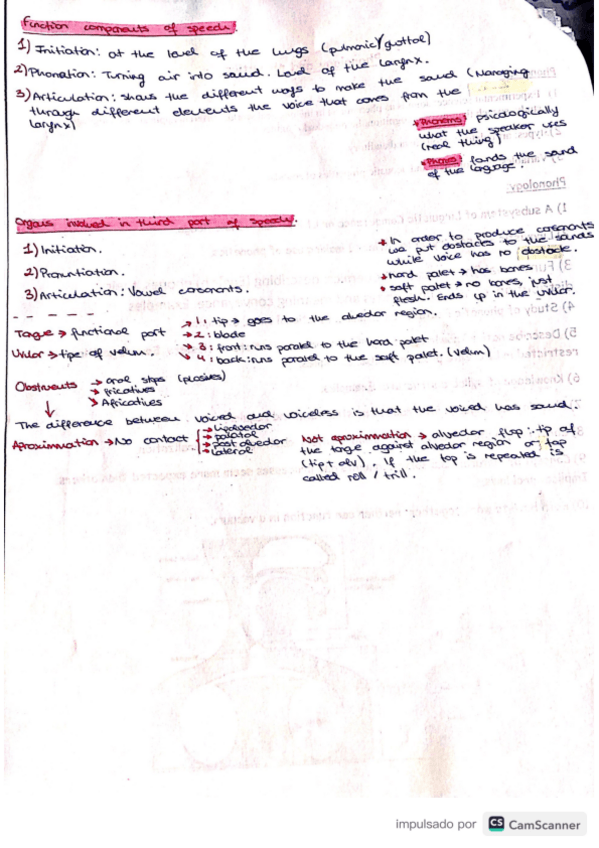 Function components of speech
1) Initiation: at the level of the lungs (pulmonic/glottal)
2) Phonation: Turning air into sound. Level of the Larynx.
3) Articulation: shows the different ways to make the sound (Managing
through different elements the voice that comes from the
larynx)
→ Phonems: psicologically
what the speaker uses
(real thing)
→ Phones: fonds the sound
of the language.
Organs involved in third part of speech.
1) Initiation.
2) Pronuntiation.
3) Articulation: Vowel consonants.
→ In order to produce consonants
we put obstacles to the sands
while voice has no obstacle.
→ hard palet → has bones
→ soft palet → no bones, just
flesh. Ends up in the uvular.
Tongue → functional part
→ 1: tip → goes to the alveolar region.
→ 2: blade
→ 3: front: runs paralel to the hard palet
→ 4: back: runs paralel to the soft palet. (velum)
Uvular → tipe of velum.
Obstruents → oral stops (plosives)
→ fricatives
→ Africatives
The difference between voiced and voiceless is that the voiced has sound.
Aproximation → No contact
→ palatal
→ post alveolar
→ lateral
Not aproximation → alveolar flap: tip of
the tonge against alveolar region or tap
(tip + alv). If the tap is repeated is
called roll / trill.
Phonology:
impulsado por CS CamScanner